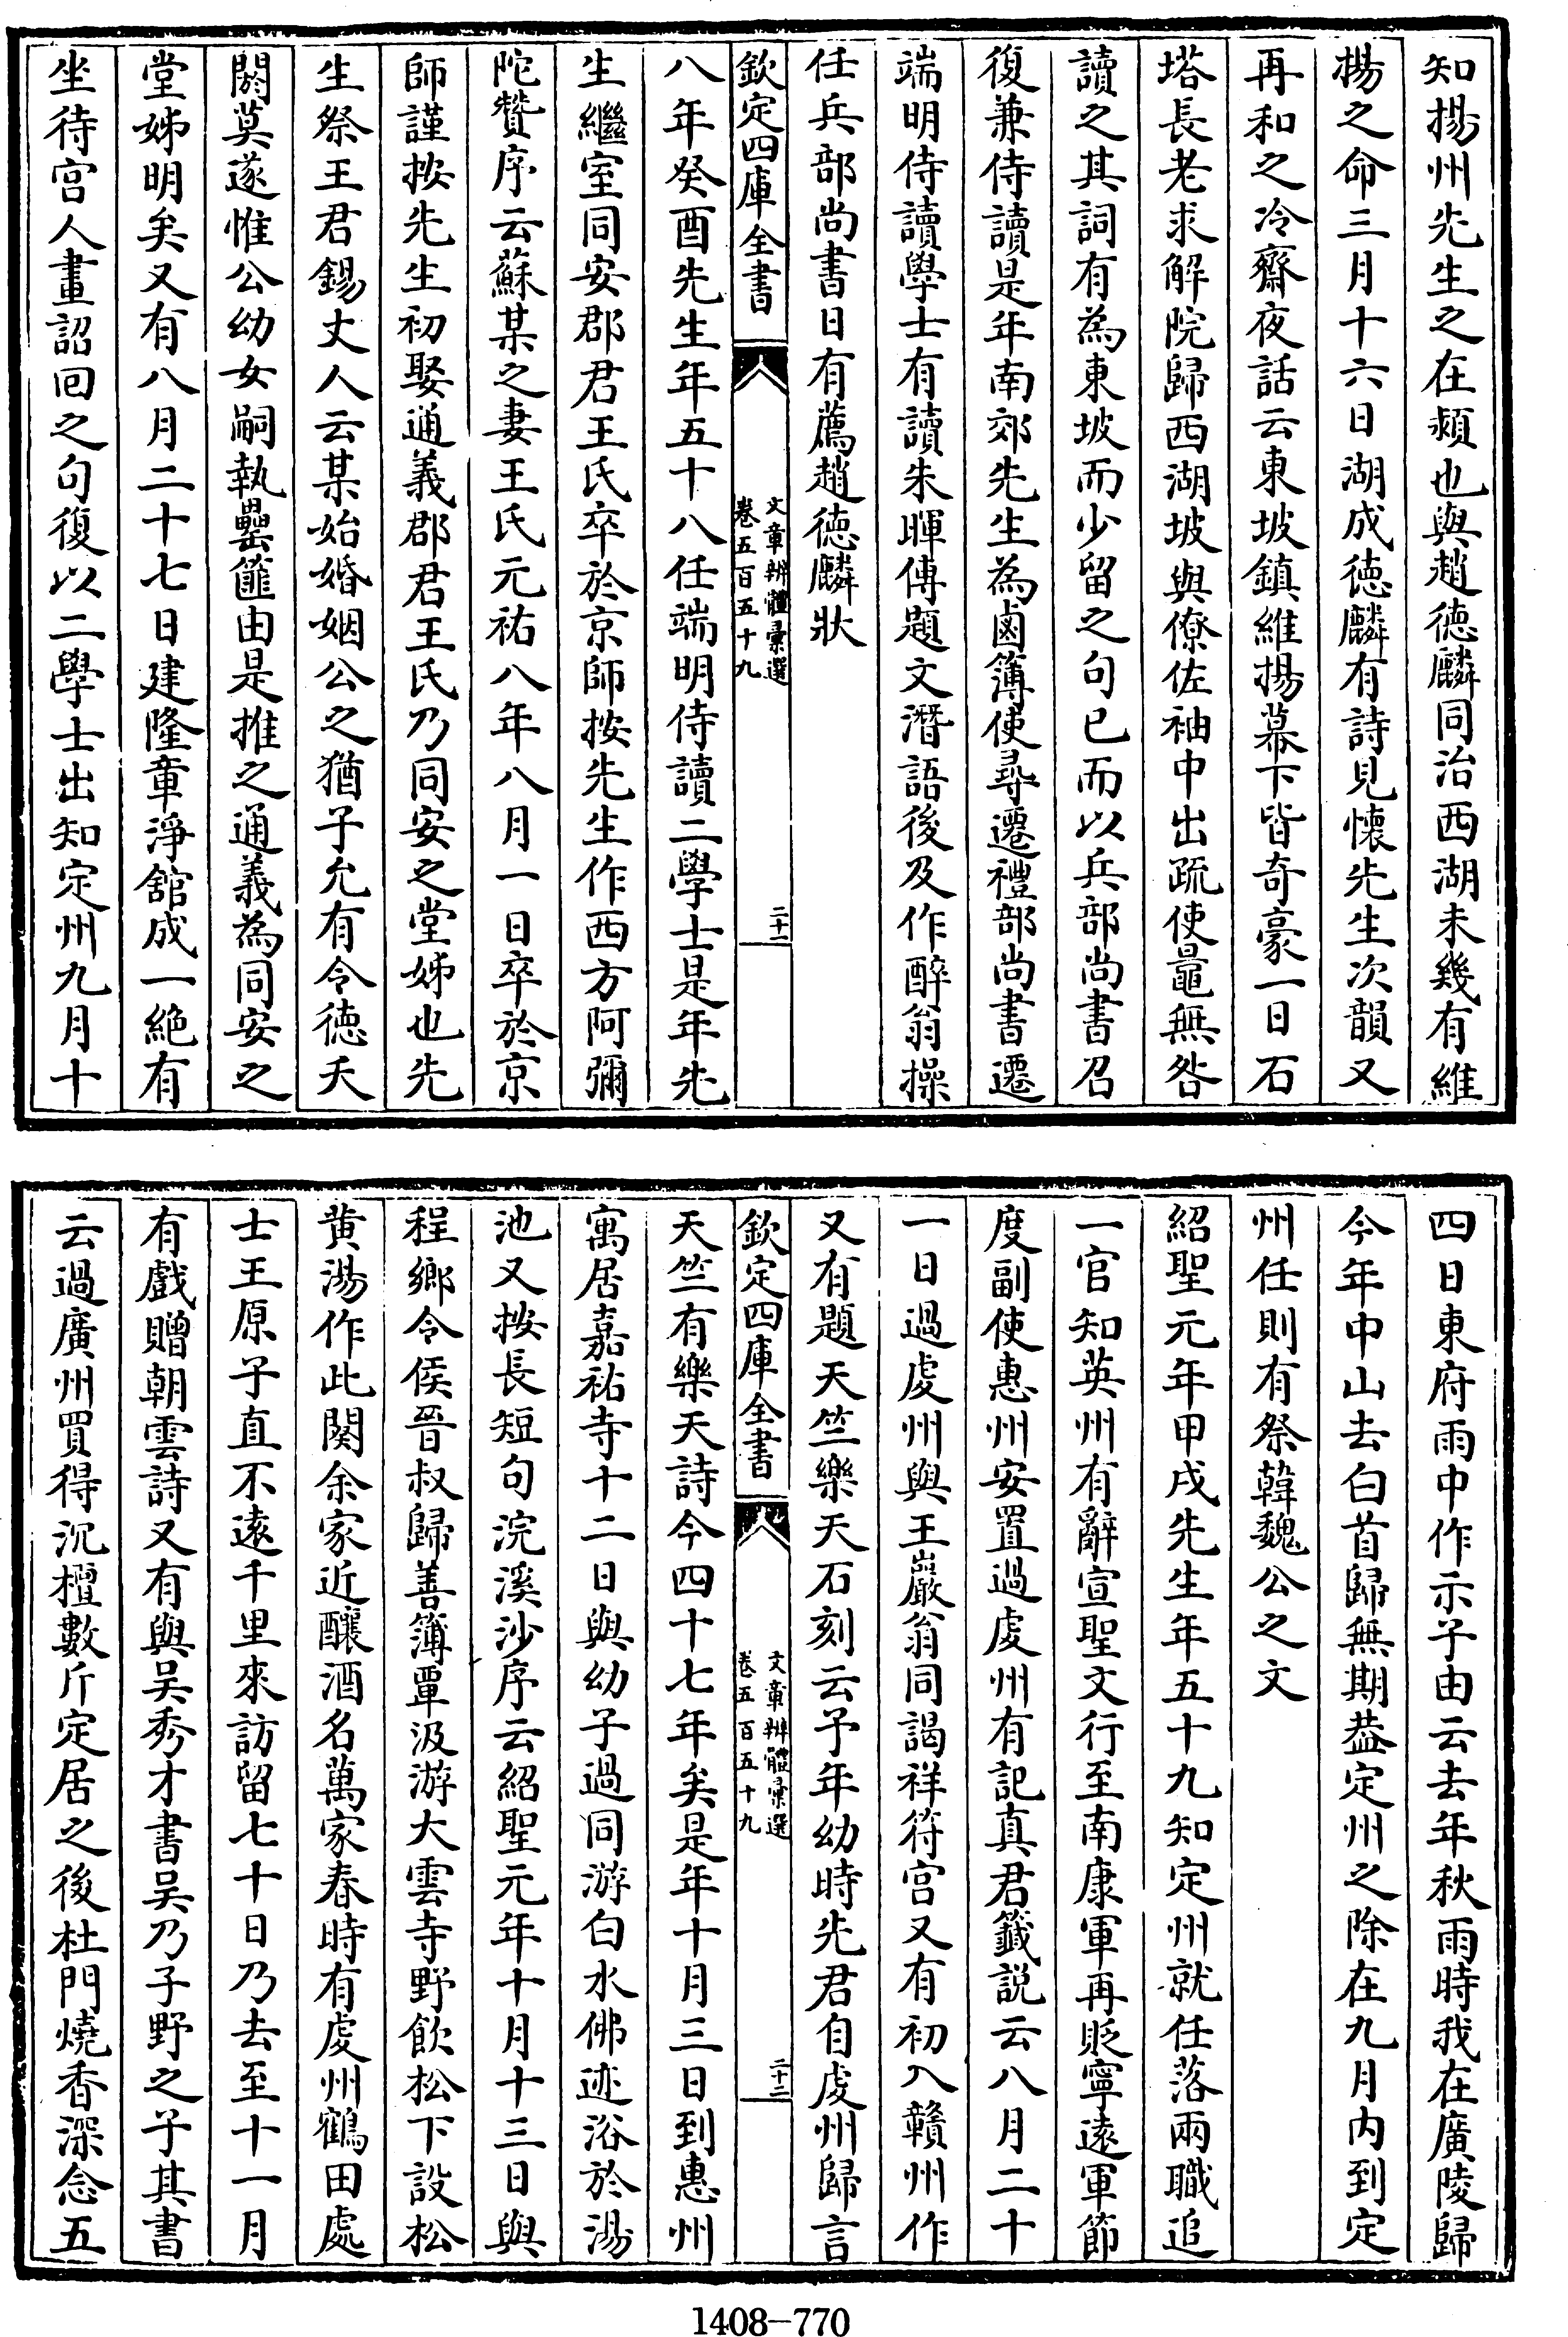 知揚州先生之在潁也與趙德麟同治西湖未幾有維
楊之命三月十六日湖成德麟有詩見懷先生次韻又
再和之冷齋夜話云東坡鎮維揚幕下皆奇豪一日石
塔長老求解院歸西湖坡與僚佐袖中出疏使鼂無咎
讀之其詞有為東坡而少留之句已而以兵部尚書召
復兼侍讀是年南郊先生為鹵簿使尋遷禮部尚書遷
端明侍讀學士有讀朱暉傳題文潛語後及作醉翁操
任兵部尚書日有薦趙德麟狀
欽定四庫全書
文章辨體彙選
卷五百五十九
二十一
八年癸酉先生年五十八任端明侍讀二學士是年先
生繼室同安郡君王氏卒於京師按先生作西方阿彌
陀贊序云蘇某之妻王氏元祐八年八月一日卒於京
師謹按先生初娶通義郡君王氏乃同安之堂姊也先
生祭王君錫丈人云某始婚姻公之猶子允有令德夭
閼莫遂惟公幼女嗣執罍篚由是推之通義為同安之
堂姊明矣又有八月二十七日建隆章淨舘成一絕有
坐待宫人畫詔回之句復以二學士出知定州九月十
四日東府雨中作示子由云去年秋雨時我在廣陵歸
今年中山去白首歸無期葢定州之除在九月内到定
州任則有祭韓魏公之文
紹聖元年甲戌先生年五十九知定州就任落兩職追
一官知英州有辭宣聖文行至南康軍再貶寧遠軍節
度副使惠州安置過虔州有記真君籤説云八月二十
一日過虔州與王巖翁同謁祥符宫又有初入贛州作
又有題天竺樂天石刻云予年幼時先君自虔州歸言
欽定四庫全書
文章辨體彙選
卷五百五十九
二十二
天竺有樂天詩今四十七年矣是年十月三日到惠州
寓居嘉祐寺十二日與幼子過同游白水佛迹浴於湯
池又按長短句浣溪沙序云紹聖元年十月十三日與
程鄉令侯晉叔歸善簿覃汲游大雲寺野飲松下設松
黄湯作此闋余家近釀酒名萬家春時有虔州鶴田處
士王原子直不遠千里來訪留七十日乃去至十一月
有戲贈朝雲詩又有與吴秀才書吴乃子野之子其書
云過廣州買得沉檀數斤定居之後杜門燒香深念五
1408—770